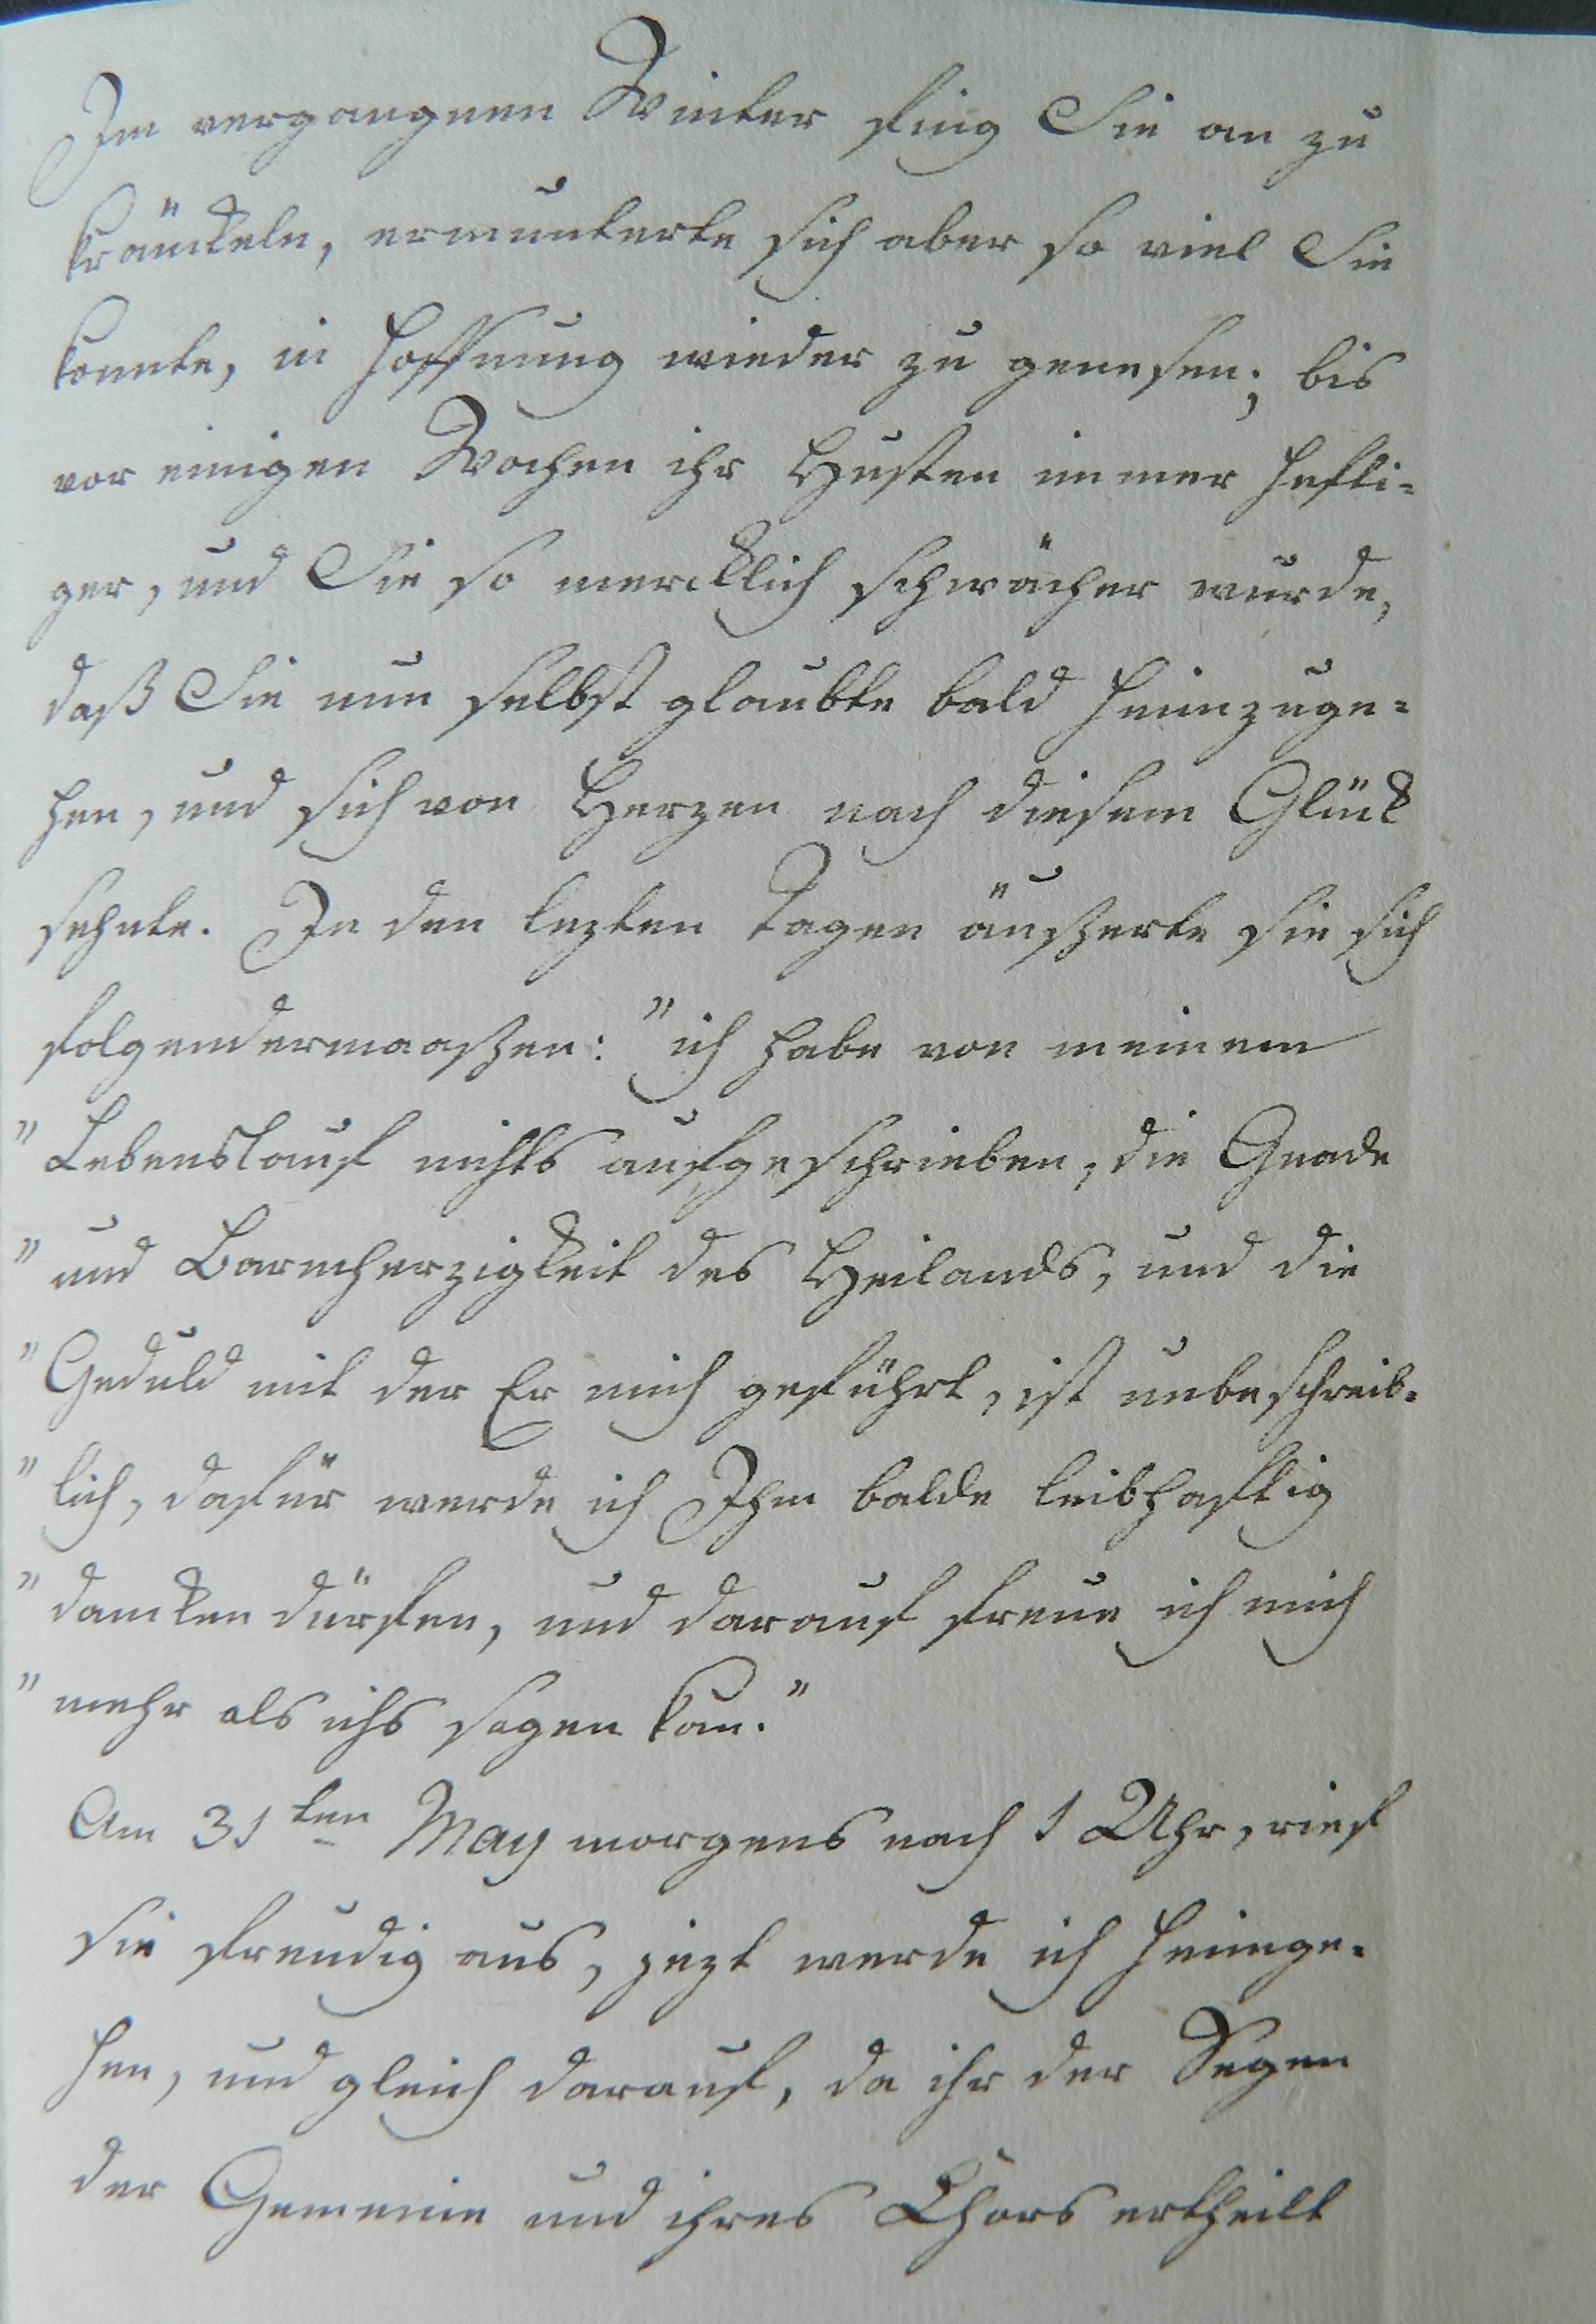 Im vergangnen Winter fing Sie an zu
kränckeln, ermunterte sich aber so viel Sie
konnte, in Hoffnung wieder zu genesen; bis
vor einigen Wochen ihr Husten immer hefti-
ger, und Sie so mercklich schwächer wurde,
daß Sie nun selbst glaubte bald heimzuge-
hen, und sich von Herzen nach diesem Glück
sehnte. In den lezten Tagen äußerte sie sich
folgendermaaßen: "ich habe von meinem
" Lebenslauf nichts aufgeschrieben, die Gnade
" und Barmherzigkeit des Heilands, und die
" Geduld mit der Er mich geführt, ist unbeschreib-
" lich, dafür werde ich Ihm balde leibhaftig
" dancken dürfen, und darauf freue ich mich
" mehr als ichs sagen kan."
Am 31ten May morgens nach 1 Uhr, rief
sie freudig aus, jezt werde ich heimge-
hen, und gleich darauf, da ihr der Segen
der Gemeine und ihres Chors ertheilt